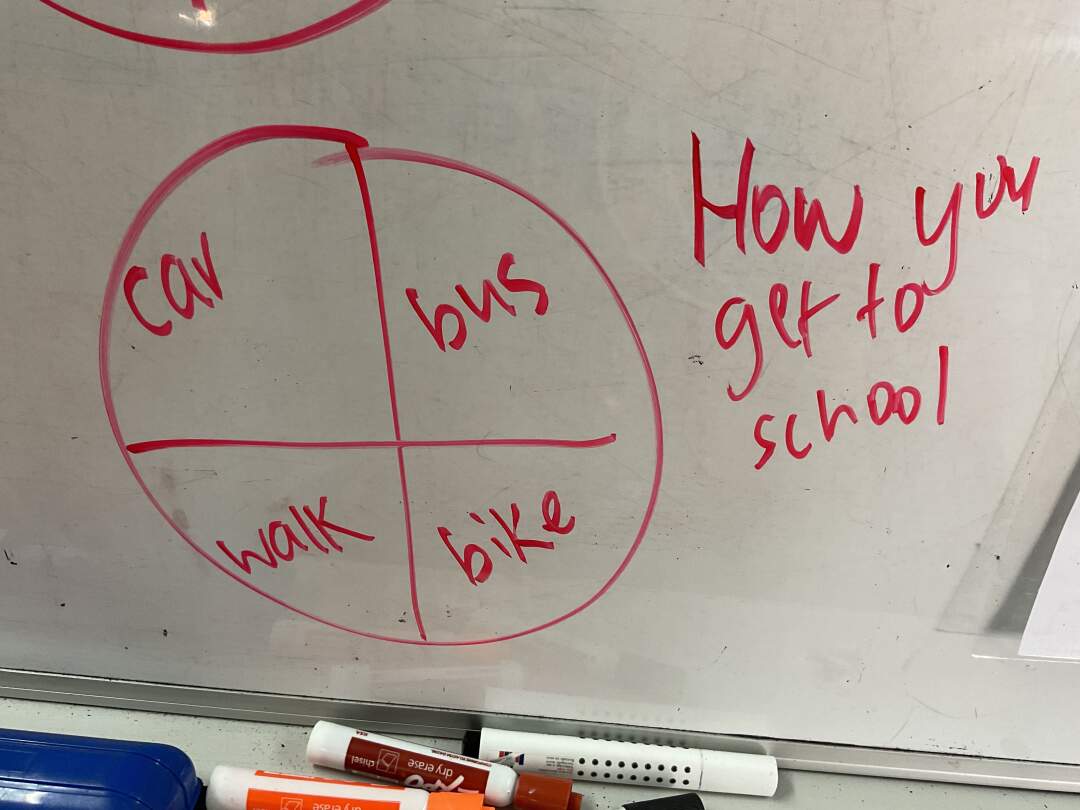 How you
get to
school
car
bus
walk
bike
chisel
dry erase
dry erase